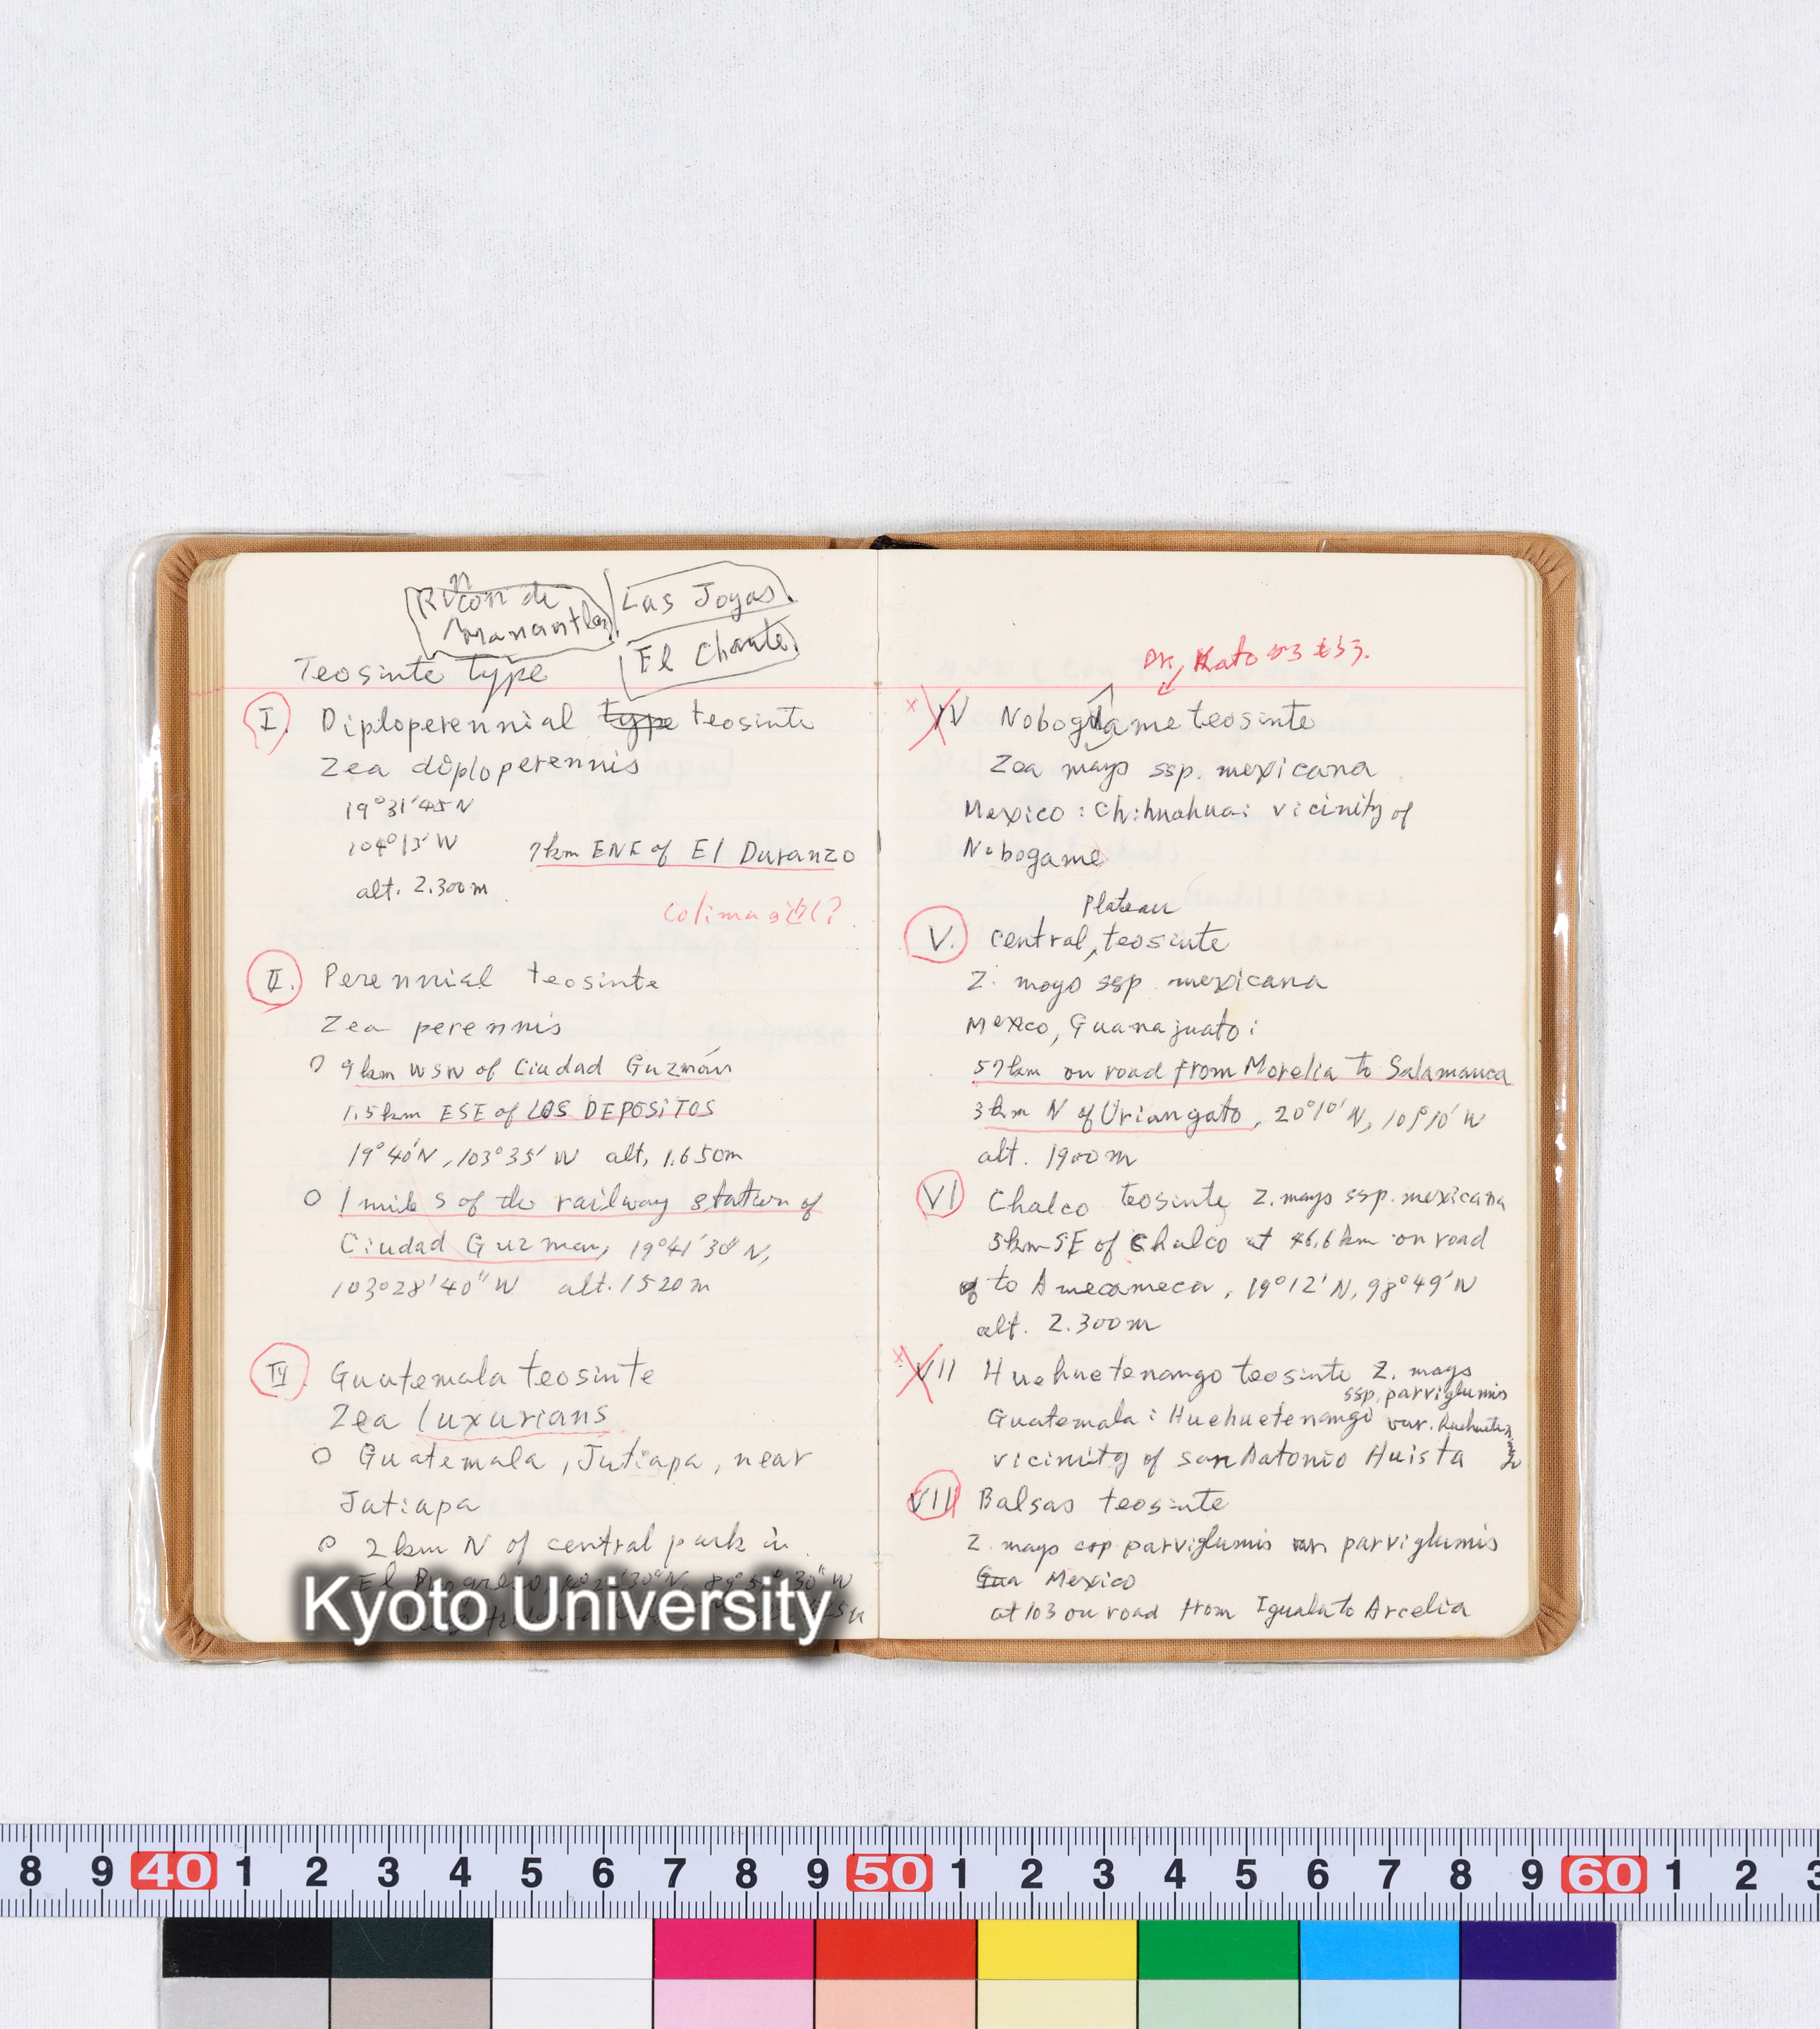 Rincon de
Manantlan
Las Joyas
El Chante
Teosinte type
I. Diploperennial type teosinte
Zea diploperennis
19°31'45 N
104°13' W 7km ENE of El Duranzo
alt. 2.300m
Colima
II. Perennial teosinte
Zea perennis
○ 9km WSW of Ciudad Guzmán
1.5km ESE of LOS DEPOSITOS
19°40'N, 103°35' W alt, 1.650m
○ 1 mile S of the railway station of
Ciudad Guzman, 19°41'30" N,
103°28'40" W alt. 1520m
Guatemala teosinte
Zea luxurians
○ Guatemala, Jutiapa, near
Jutiapa
○ 2km N of central park in
Kyoto University
Dr, Kato
× IV Nobogame teosinte
Zea mays ssp. mexicana
Mexico: Chihuahua: vicinity of
Nobogame
Plateau
V. central, teosinte
Z. mays ssp. mexicana
Mexico, Guanajuato:
57km on road from Morelia to Salamanca
3km N of Uriangato, 20°10' N, 101°10' W
alt. 1900m
VI Chalco teosinte Z. mays ssp. mexicana
5km SE of Chalco at 46.6km on road
to Amecameca, 19°12' N, 98°49' W
alt. 2.300m
× VII Huehuetenango teosinte Z. mays
ssp. parviglumis
Guatemala: Huehuetenango var. huehuete
vicinity of san Antonio Huista
VIII Balsas teosinte
Z. mays ssp parviglumis var parviglumis
Gua Mexico
at 103 on road from Iguala to Arcelia
8 9 40 1 2 3 4 5 6 7 8 9 50 1 2 3 4 5 6 7 8 9 60 1 2 3